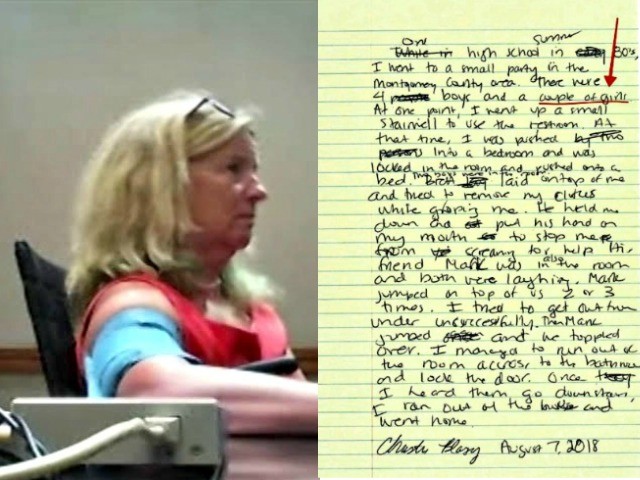 summer
high school in 80's,
I went to a small party in the
Montgomery County area. There were
4 boys and a couple of girls.
At one point, I went up a small
stairwell to use the restroom. At
that time, I was pushed
into a bedroom and was
locked in the room and pushed onto a
bed. laid on top of me
and tried to remove my clothes
while me. He held me
down and put his hand on
my mouth to stop me
from screaming to help. His
friend Mark was also in the room
and both were laughing. Mark
jumped on top of us 2 or 3
times. I tried to get out from
under unsuccessfully. Then Mark
jumped and we toppled
over. I managed to run out of
the room across to the bathroom
and lock the door. Once
I heard them go downstairs,
I ran out of the and
went home.
August 7, 2018